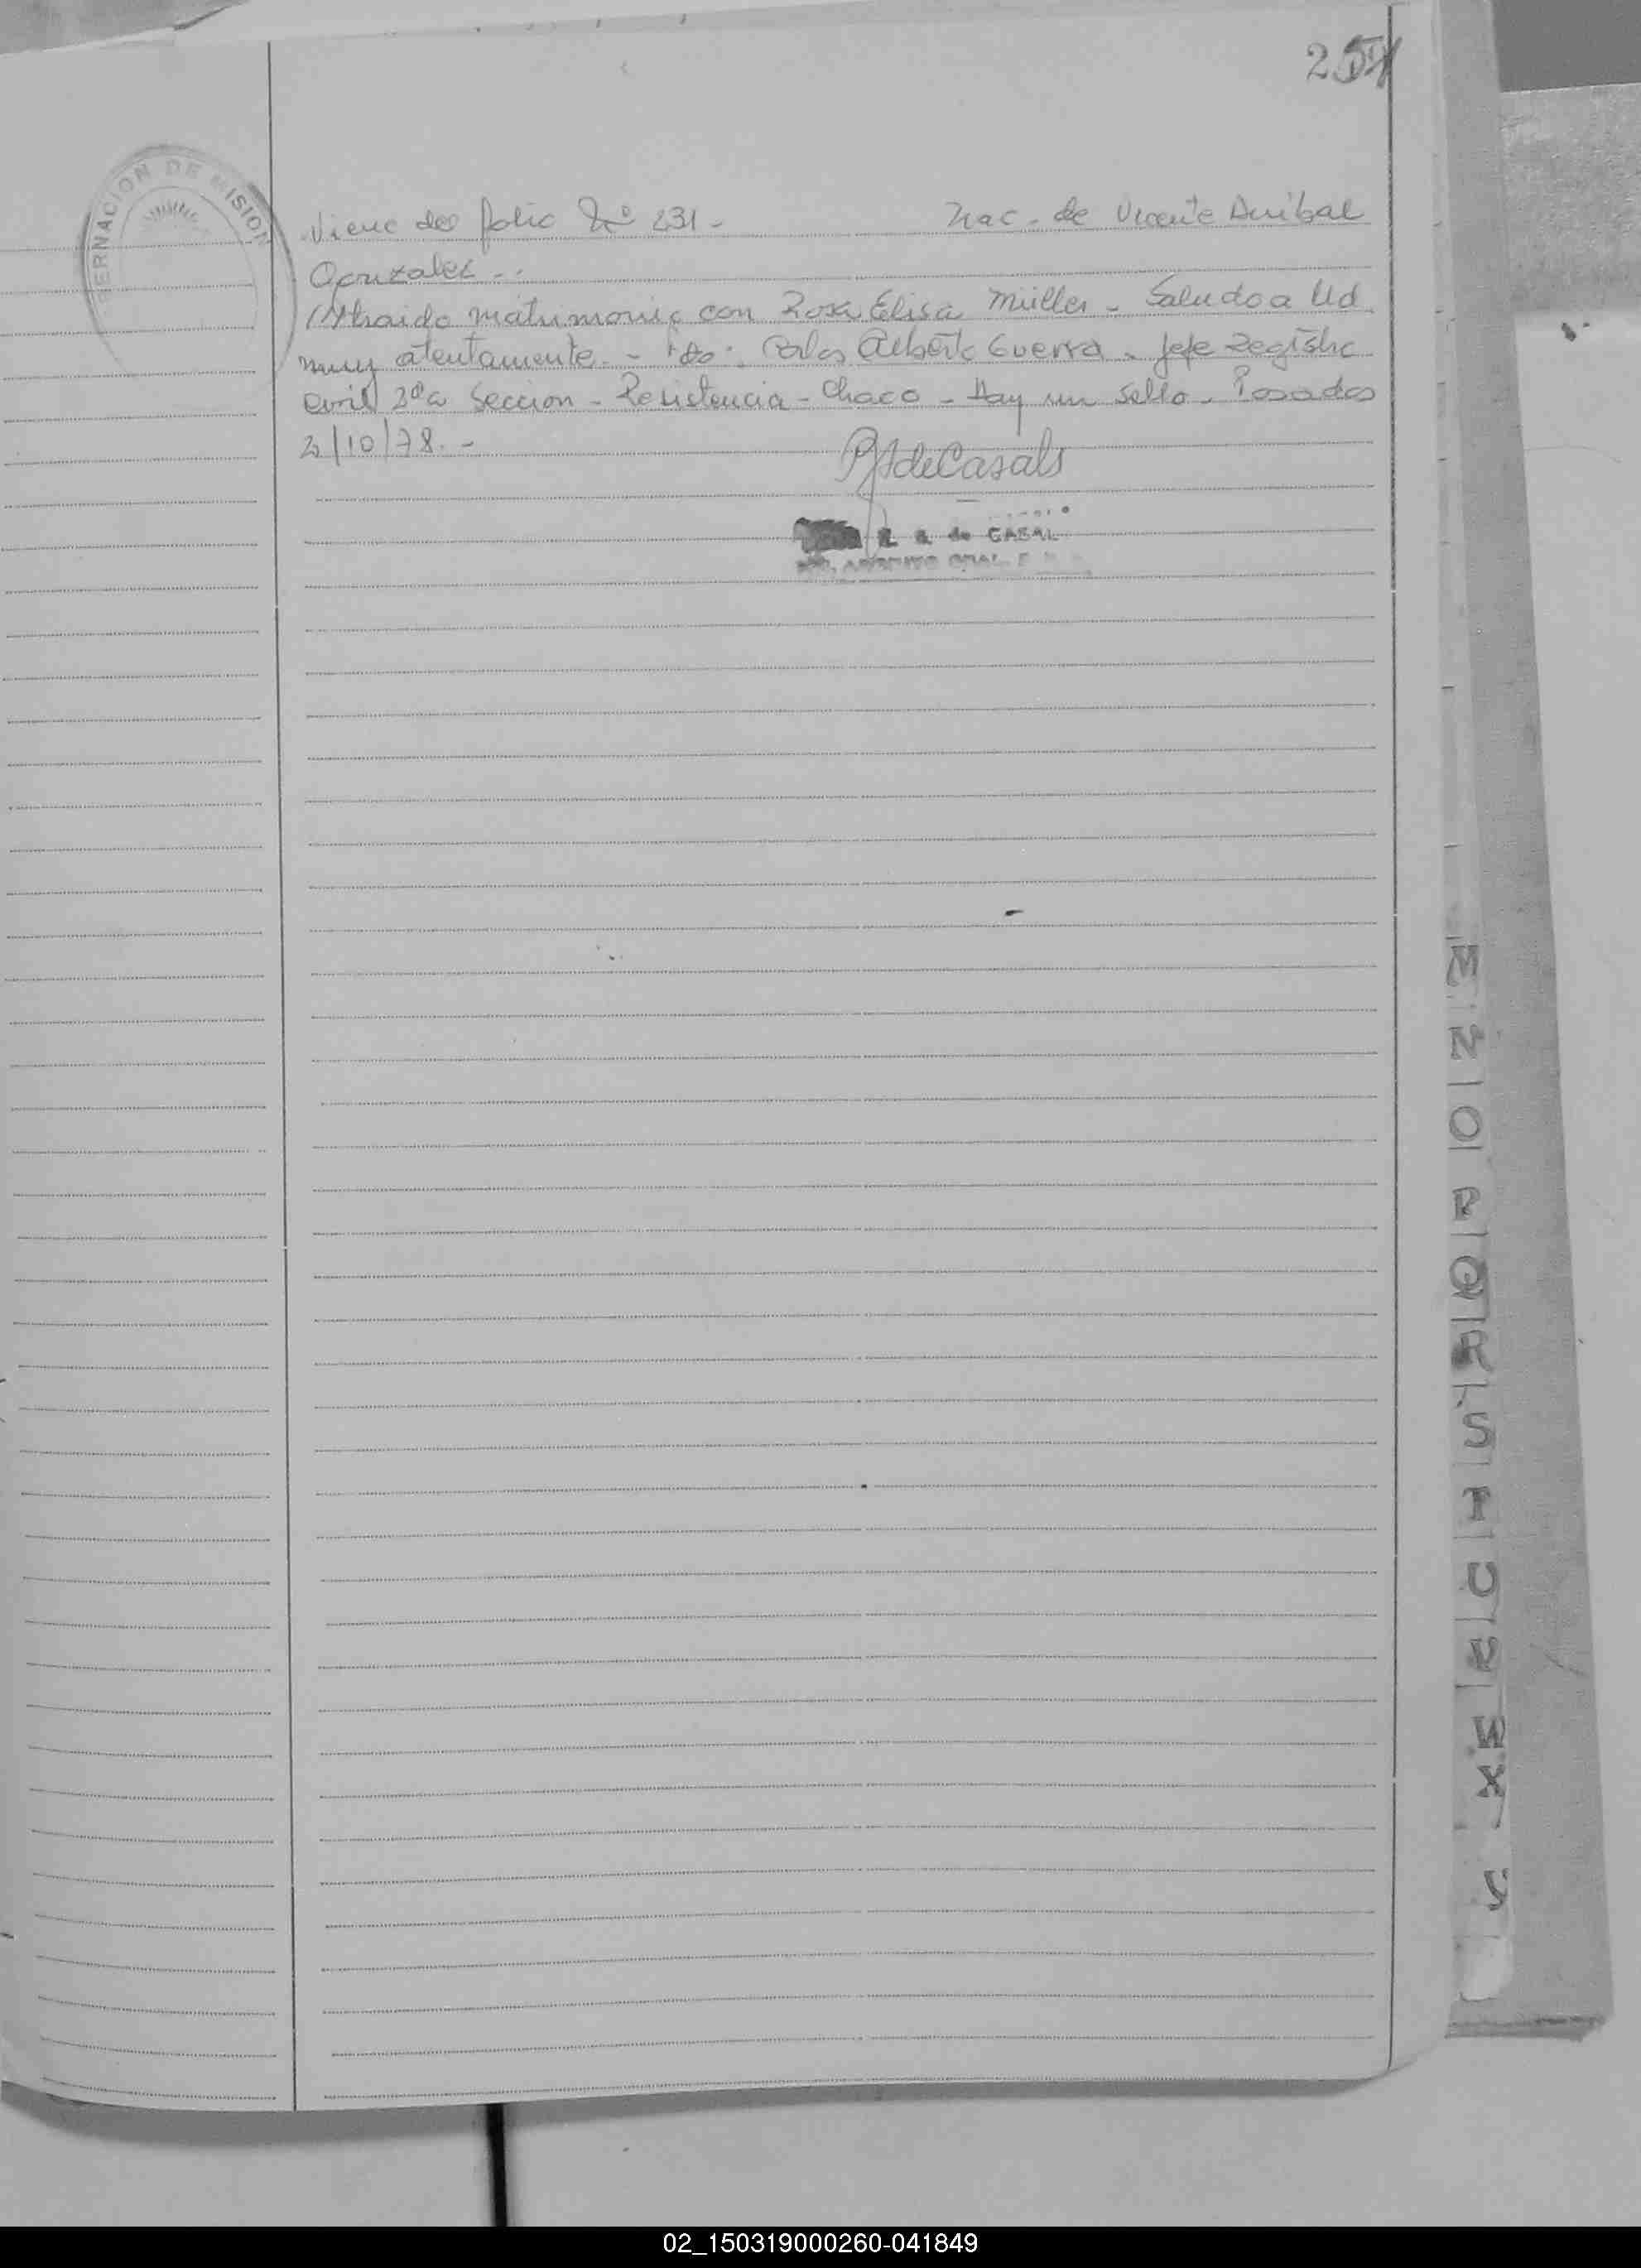 25
ERNACION DE MISION
Viene del folio Nº 231 - Nac. de Vicente Anibal
Gonzalez. -
traido matrimonio con Rosa Elisa Müller - Saludo a Ud
muy atentamente. - Fdo: Carlos Alberto Guerra. Jefe Registro
Civil 3ra Seccion - Resistencia - Chaco - Hay un sello. Posadas
2/10/78. -
de Casals
R. A. de CASAL
M
N
O
P
Q
R
S
T
U
W
X
02_150319000260-041849